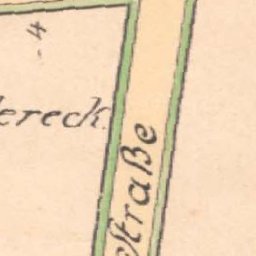 4
ereck.
Straße